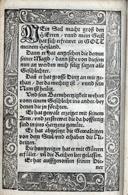 MEin Seel macht groß den
HErren / vnnd mein Geist
hat sich erfreuet in GOTT
meinem Heyland.
Dann er hat angesehen die demut
seiner Magd / dann sihe von nun
an werden mich selig sagen alle
Geschlechter.
Das er hat grosse ding an mir ge-
than / der da mechtig ist / vnnd sein
Nam ist heilig.
Vnd sein Barmhertzigkeit wehret
vom einem Geschlecht ins ander, bey
denen die jn förchten.
Er hat gewalt erzeigt mit seinem
Arm / vnd zerstrewet die Hoffertig
seines Hertzen.
Er hat abgesetzt die Gewaltigen
von dem Stul / vnd erhöcht die De-
mütigen.
Er hat die Hungerigen mit Güttern
erfüllet / vnd die Reichen leer gelassen
Er hat auffgenommen